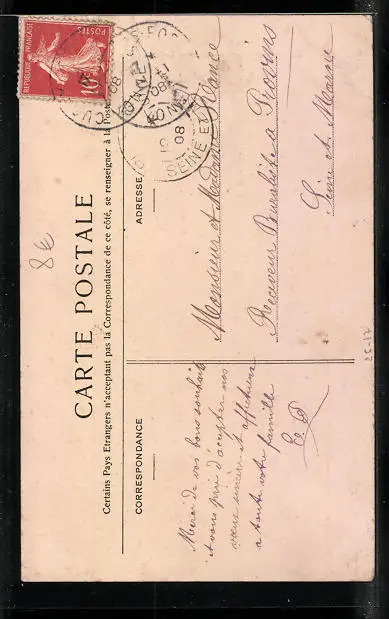 CARTE POSTALE
Certains Pays Etrangers n'acceptant pas la Correspondance de ce côté, se renseigner à la Poste
CORRESPONDANCE
ADRESSE
Merci de vos bons souhaits
et vous prie d'accepter nos
vœux sincère et affectueux
a toute votre famille
Monsieur et Madame
Receveur Buraliste a Provins
Seine et Marne
REPUBLIQUE FRANÇAISE
POSTES
10c
SEINE ET
08
8€
25-17